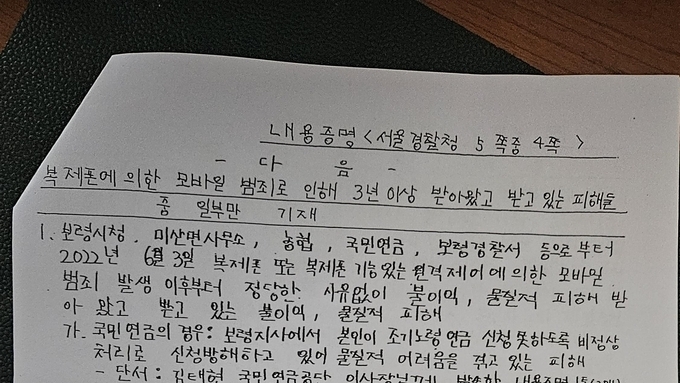 내용증명 <서울경찰청 5쪽중 4쪽>
- 다 음 -
복제폰에 의한 모바일 범죄로 인해 3년이상 받아왔고 받고 있는 피해들
중 일부만 기재
1. 보령시청, 미산면사무소, 농협, 국민연금, 보령경찰서 등으로부터
2022년 6월 3일 복제폰 또는 복제폰 기능있는 원격제어에 의한 모바일
범죄 발생 이후부터 정당한 사유없이 불이익, 물질적 피해 받
아 왔고 받고 있는 불이익, 물질적 피해
가. 국민연금의 경우: 보령지사에서 본인이 조기노령연금 신청못하도록 비정상
처리로 신청방해하고 있어 물질적 어려움을 겪고 있는 피해
- 단서: 김태현 국민연금공단 이사장님께 발송한 내용증명